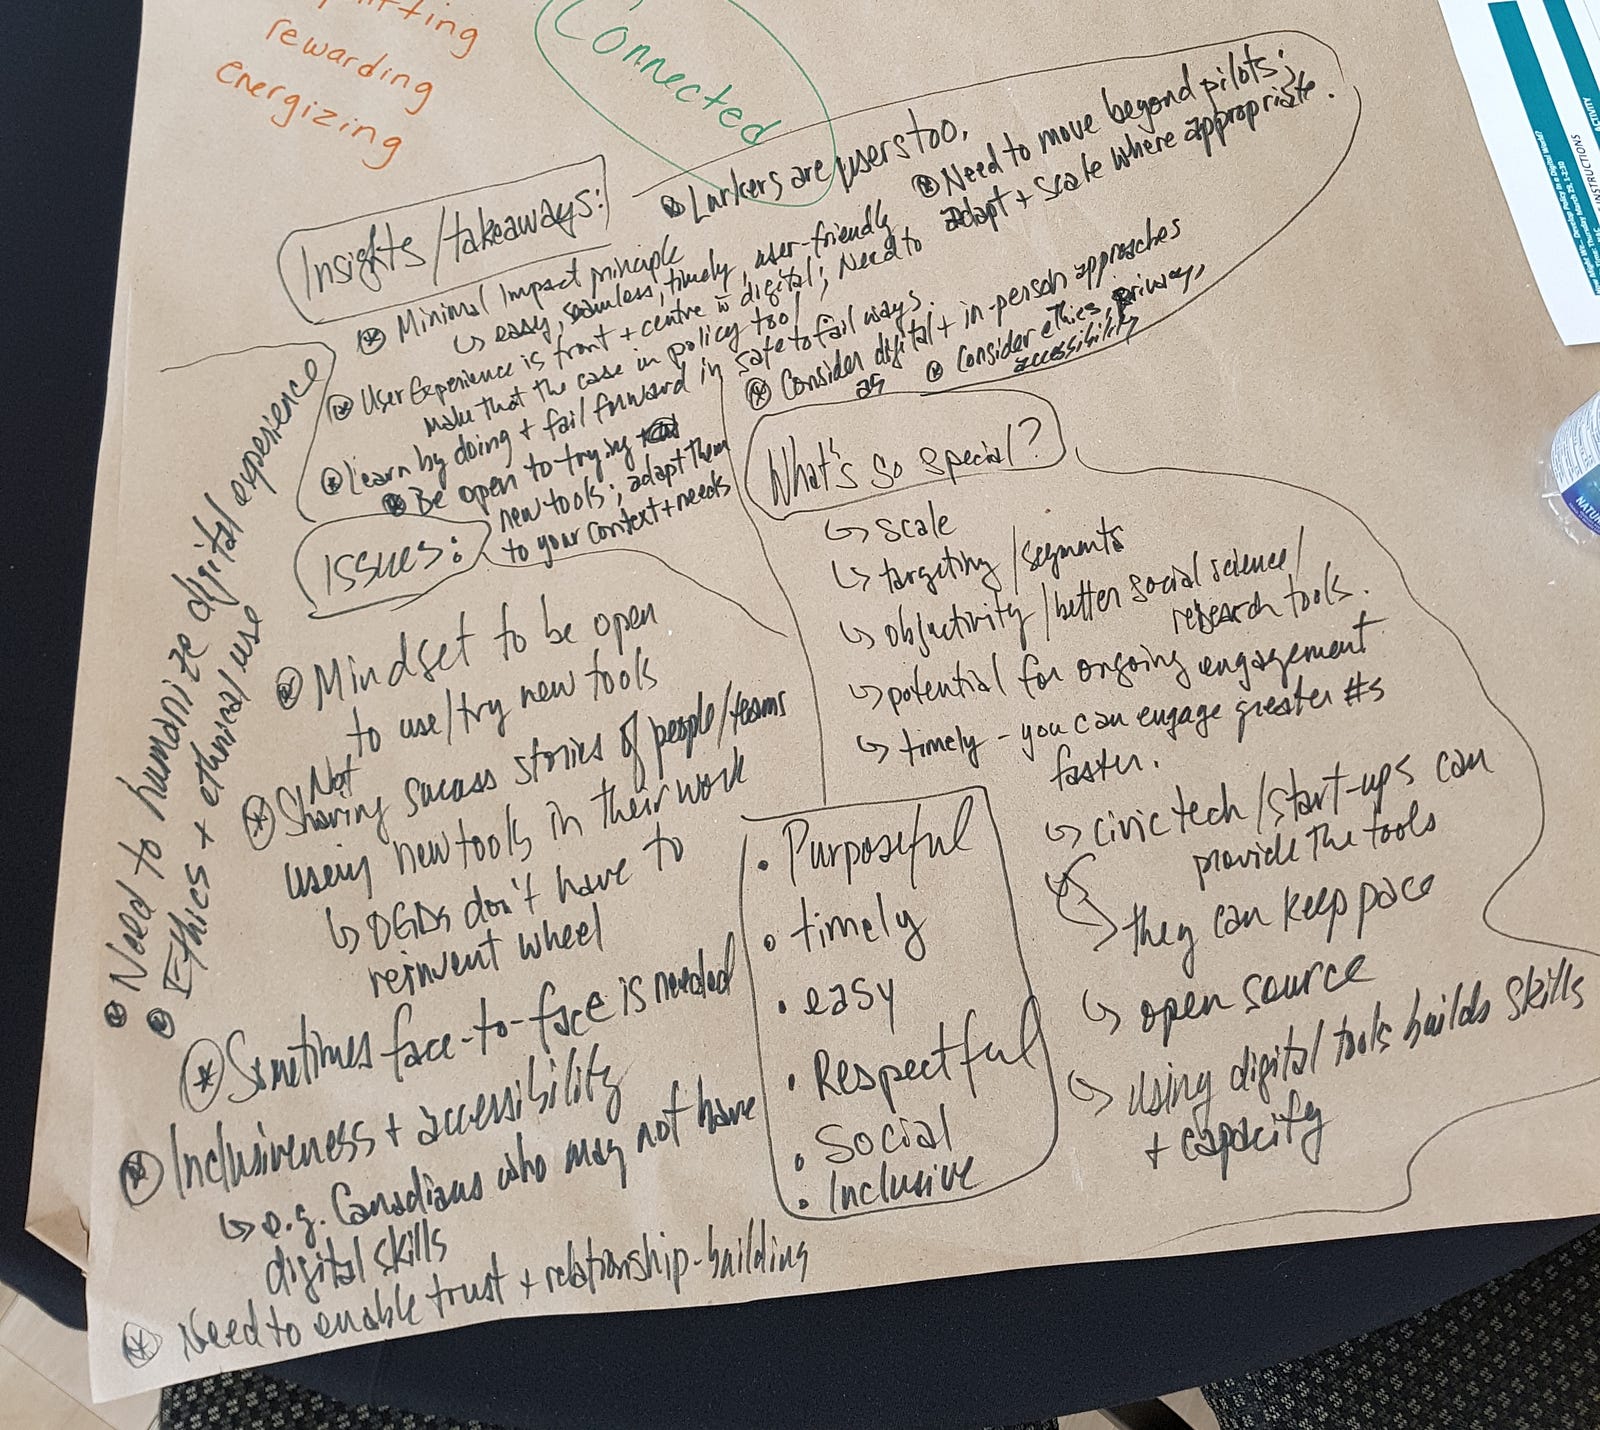 rewarding
energizing
Connected
Insights/takeaways:
Lurkers are users too.
Need to move beyond pilots;
adapt + scale where appropriate.
Minimal Impact principle
↳ easy, seamless, timely, user-friendly
User Experience is front + centre in digital; Need to
make that the case in policy too!
Learn by doing + fail forward in safe to fail ways.
Be open to trying
new tools; adapt them
to your context + needs
Consider digital + in-person approaches
as
Consider ethics, privacy,
accessibility
Issues:
Mindset to be open
to use/try new tools
Not
Sharing success stories of people/teams
using new tools in their work
↳ OGDs don't have to
reinvent wheel
Sometimes face-to-face is needed
Inclusiveness + accessibility
↳ e.g. Canadians who may not have
digital skills
Need to enable trust + relationship-building
Need to humanize digital experience
Ethics + ethical use
What's so special?
↳ scale
↳ targeting/segments
↳ objectivity/better social science/
research tools.
↳ potential for ongoing engagement
↳ timely - you can engage greater #s
faster.
↳ civic tech/start-ups can
provide the tools
↳ they can keep pace
↳ open source
↳ using digital tools builds skills
+ capacity
• Purposeful
• timely
• easy
• Respectful
• Social
• Inclusive
INSTRUCTIONS
ACTIVITY